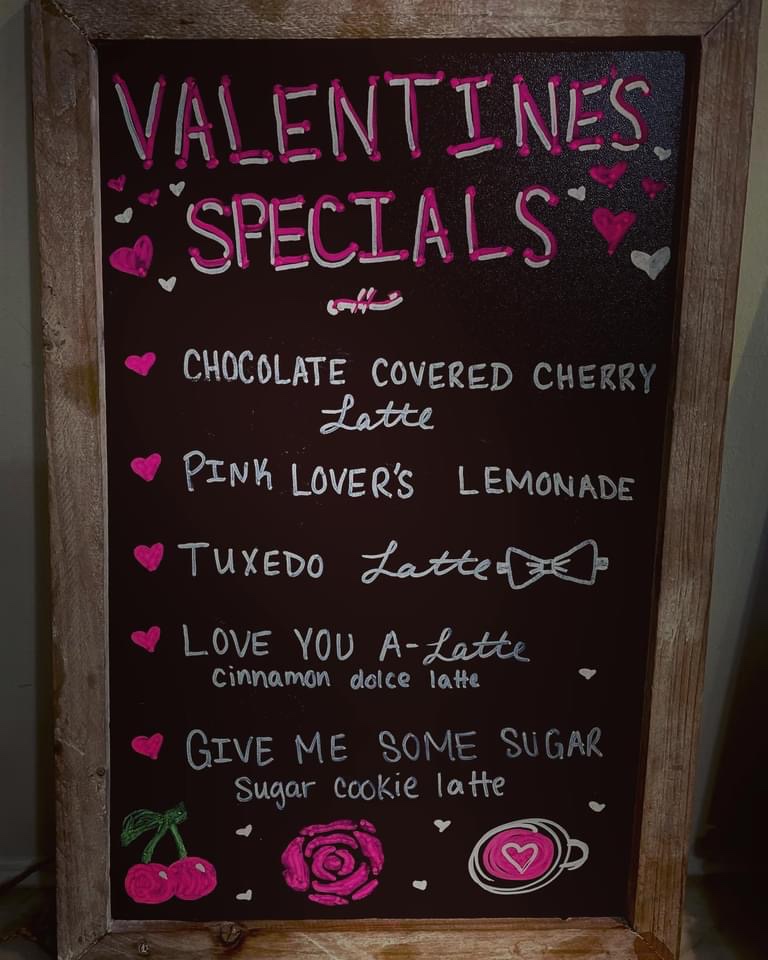 VALENTINE'S
SPECIALS
CHOCOLATE COVERED CHERRY
Latte
PINK LOVER'S LEMONADE
TUXEDO Latte
LOVE YOU A-Latte
cinnamon dolce latte
GIVE ME SOME SUGAR
Sugar cookie latte